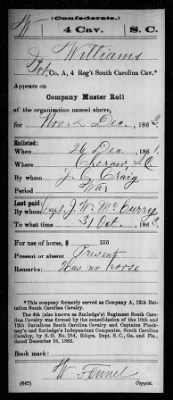 W (Confederate.)
4 Cav. S. C.
J Williams
Pvt, Co. A, 4 Reg't South Carolina Cav.*
Appears on
Company Muster Roll
of the organization named above,
for Nov & Dec, 1863.
Enlisted:
When 26 Dec, 1861.
Where Cheraw, S.C.
By whom J. C. Craig
Period War
Last paid:
By whom Capt. J. W. McCurry
To what time 31 Oct, 1863.
For use of horse, $ 
Present or absent Present
Remarks: Has no horse
*This company formerly served as Company A, 12th Battalion South Carolina Cavalry.
The 4th (also known as Rutledge's) Regiment South Carolina Cavalry was formed by the consolidation of the 10th and 12th Battalions South Carolina Cavalry and Captains Pinckney's and Rutledge's Independent Companies, South Carolina Cavalry, by S. O. No. 254, Hdqrs. Dept. S. C., Ga. and Fla., dated December 16, 1862.
Book mark:
(642) Copyist.